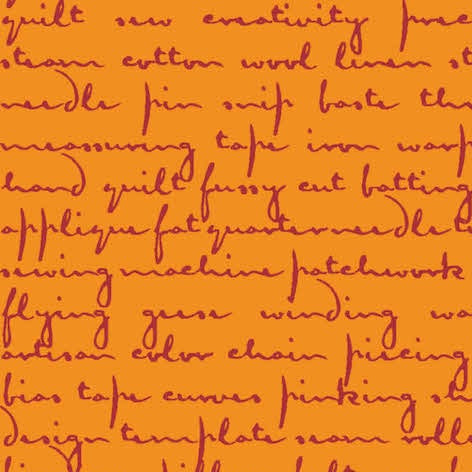 quilt sew creativity prec
steam cotton wool linen st
needle pin snip baste thr
meassuring tape iron warp
hand quilt fussy cut batting
applique fat quarter needle tu
sewing machine patchwork
flying geese winding wa
artisan color chain piecing
bias tape curves pinking sh
design template seam roll